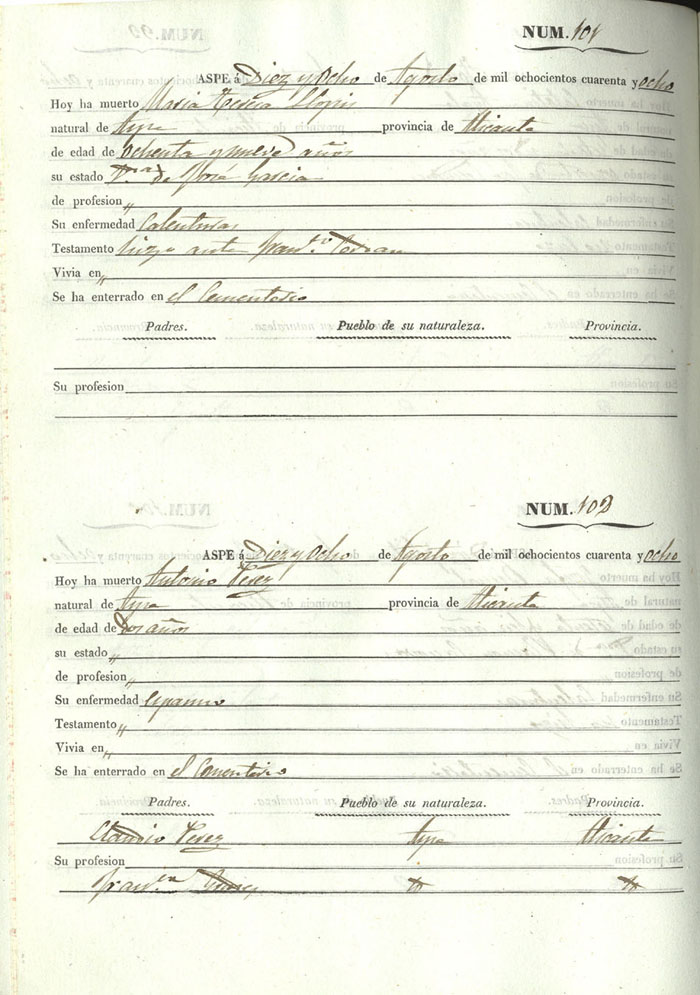 NUM. 101
ASPE á Diez y Ocho de Agosto de mil ochocientos cuarenta y ocho
Hoy ha muerto Maria Teresa Llopis
natural de Aspe provincia de Alicante
de edad de Ochenta y nueve años
su estado V.da de José Garcia
de profesion „
Su enfermedad Calenturas
Testamento hizo ante Fran.co
Vivia en „
Se ha enterrado en el Cementerio
Padres. Pueblo de su naturaleza. Provincia.
Su profesion
NUM. 102
ASPE á Diez y Ocho de Agosto de mil ochocientos cuarenta y ocho
Hoy ha muerto Antonio Perez
natural de Aspe provincia de Alicante
de edad de Dos años
su estado „
de profesion „
Su enfermedad espasmo
Testamento „
Vivia en „
Se ha enterrado en el Cementerio
Padres. Pueblo de su naturaleza. Provincia.
Claudio Perez Aspe Alicante
Su profesion